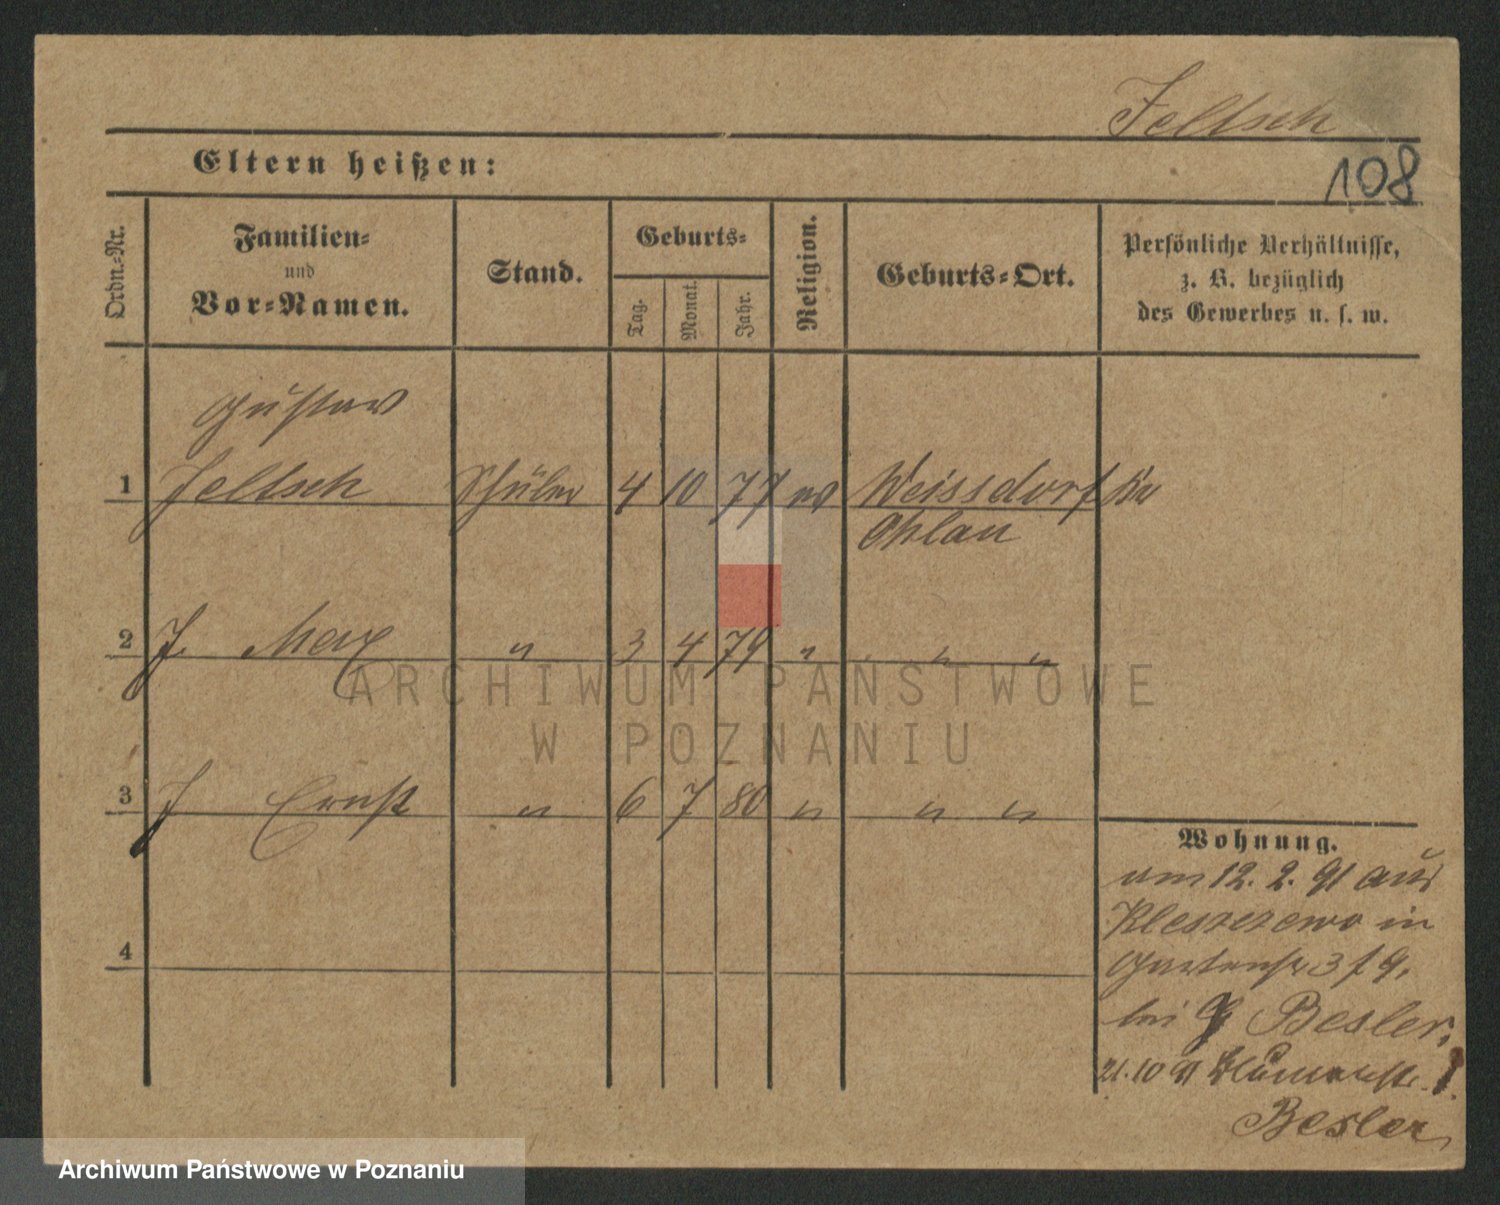 Feltsch
Eltern heißen:
108
Ordn.-Nr.
Familien-
und
Vor-Namen.
Stand.
Geburts-
Tag.
Monat.
Jahr.
Religion.
Geburts-Ort.
Persönliche Verhältnisse,
z. B. bezüglich
des Gewerbes u. s. w.
Gustav
1 Feltsch Schüler 4 10 77 ev Weissdorf Kr
Ohlau
2 F. Max " 3 4 79 " " "
3 F Ernst " 6 7 80 " " "
4
Wohnung.
am 12. 2. 91 aus
Kleszczewo in
Gartenstr 3 f 9.
bei Besler.
21. 10 91
Besler
ARCHIWUM PAŃSTWOWE
W POZNANIU
Archiwum Państwowe w Poznaniu